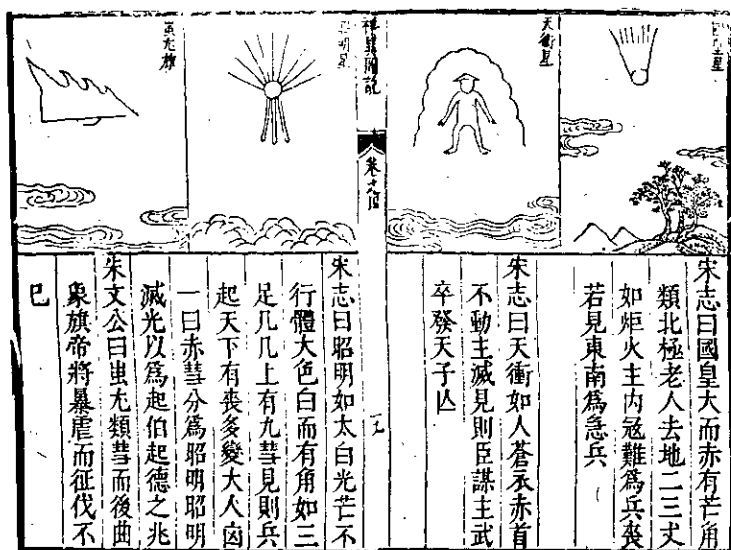 天衝星
昭明星
蚩尤旗
宋志曰國皇大而赤有芒角
類北極老人去地二三丈
如炬火主内冦難爲兵喪
若見東南爲急兵
宋志曰天衝如人蒼衣赤首
不動主滅見則臣謀主武
卒發天子亾
宋志曰昭明如太白光芒不
行體大色白而有角如三
足几几上有九彗見則兵
起天下有喪多變大人凶
一曰赤彗分爲昭明昭明
滅光以爲起伯起德之兆
朱文公曰蚩尤類彗而後曲
象旗帝將暴虐而征伐不
已